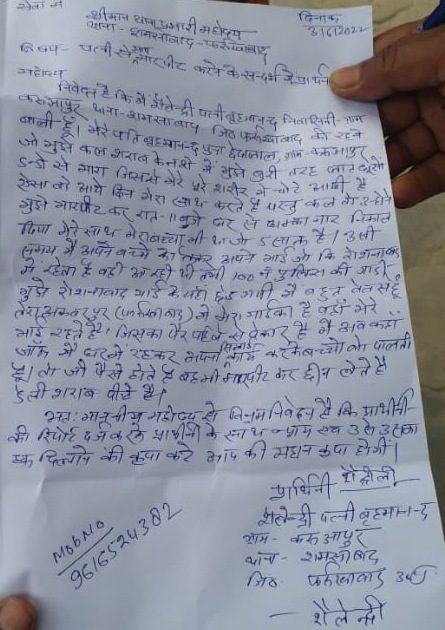 सेवा में
श्रीमान थाना प्रभारी महोदय
थाना - शमसाबाद - फर्रुखाबाद
दिनांक
3/6/2022
विषय - पत्नी से मारपीट करने के सन्दर्भ में प्रार्थना
महोदय
निवेदन है कि मैं शैलेन्द्री पत्नी बृहमानन्द निवासिनी - ग्राम
करुआपुर थाना - शमसाबाद, जि० फर्रुखाबाद की रहने
वाली हूँ। मेरे पति बृहमानन्द पुत्र ग्राम - करुआपुर
जो मुझे कल शराब के नशे में मुझे बुरी तरह लात घूसों
डन्डों से मारा जिससे मेरे पूरे शरीर में चोटें आयी है
ऐसा वो आये दिन मेरे साथ करते है परन्तु कल तो उन्होंने
मुझे मारपीट कर रात - 11 बजे घर से धक्का मार निकाल
दिया मेरे साथ मेरा बच्चा भी था जो 5 साल का है। उसी
समय मैं अपने बच्चे को लेकर अपने भाई जो कि रोशनाबाद
में रहता है वहीं जा रही थी तभी 100 नं पुलिस की गाड़ी
मुझे रोशनाबाद भाई के यहाँ छोड़ गयी मैं बहुत बेबस हूँ
(फर्रुखाबाद) में मेरा मायका है वहाँ मेरे
भाई रहते है। जिसका पैर पहले से बेकार है मैं अब कहाँ
जाऊँ मैं घर में रहकर सिलाई कार्य करके बच्चों को पालती
हूँ। वो जो पैसे होते है वह भी मारपीट कर छीन लेते है
शराब पीते है।
अतः माननीय महोदय से विनम्र निवेदन है कि प्रार्थिनी
की रिपोर्ट दर्ज करके प्रार्थिनी के साथ न्याय एवं उसे उसका
हक दिलाने की कृपा करे आप की महान कृपा होगी।
प्रार्थिनी
शैलेन्द्री पत्नी बृहमानन्द
ग्राम - करुआपुर
थाना - शमसाबाद
जि० फर्रुखाबाद उ०प्र०
शैलेन्द्री
MOB NO
9616524382